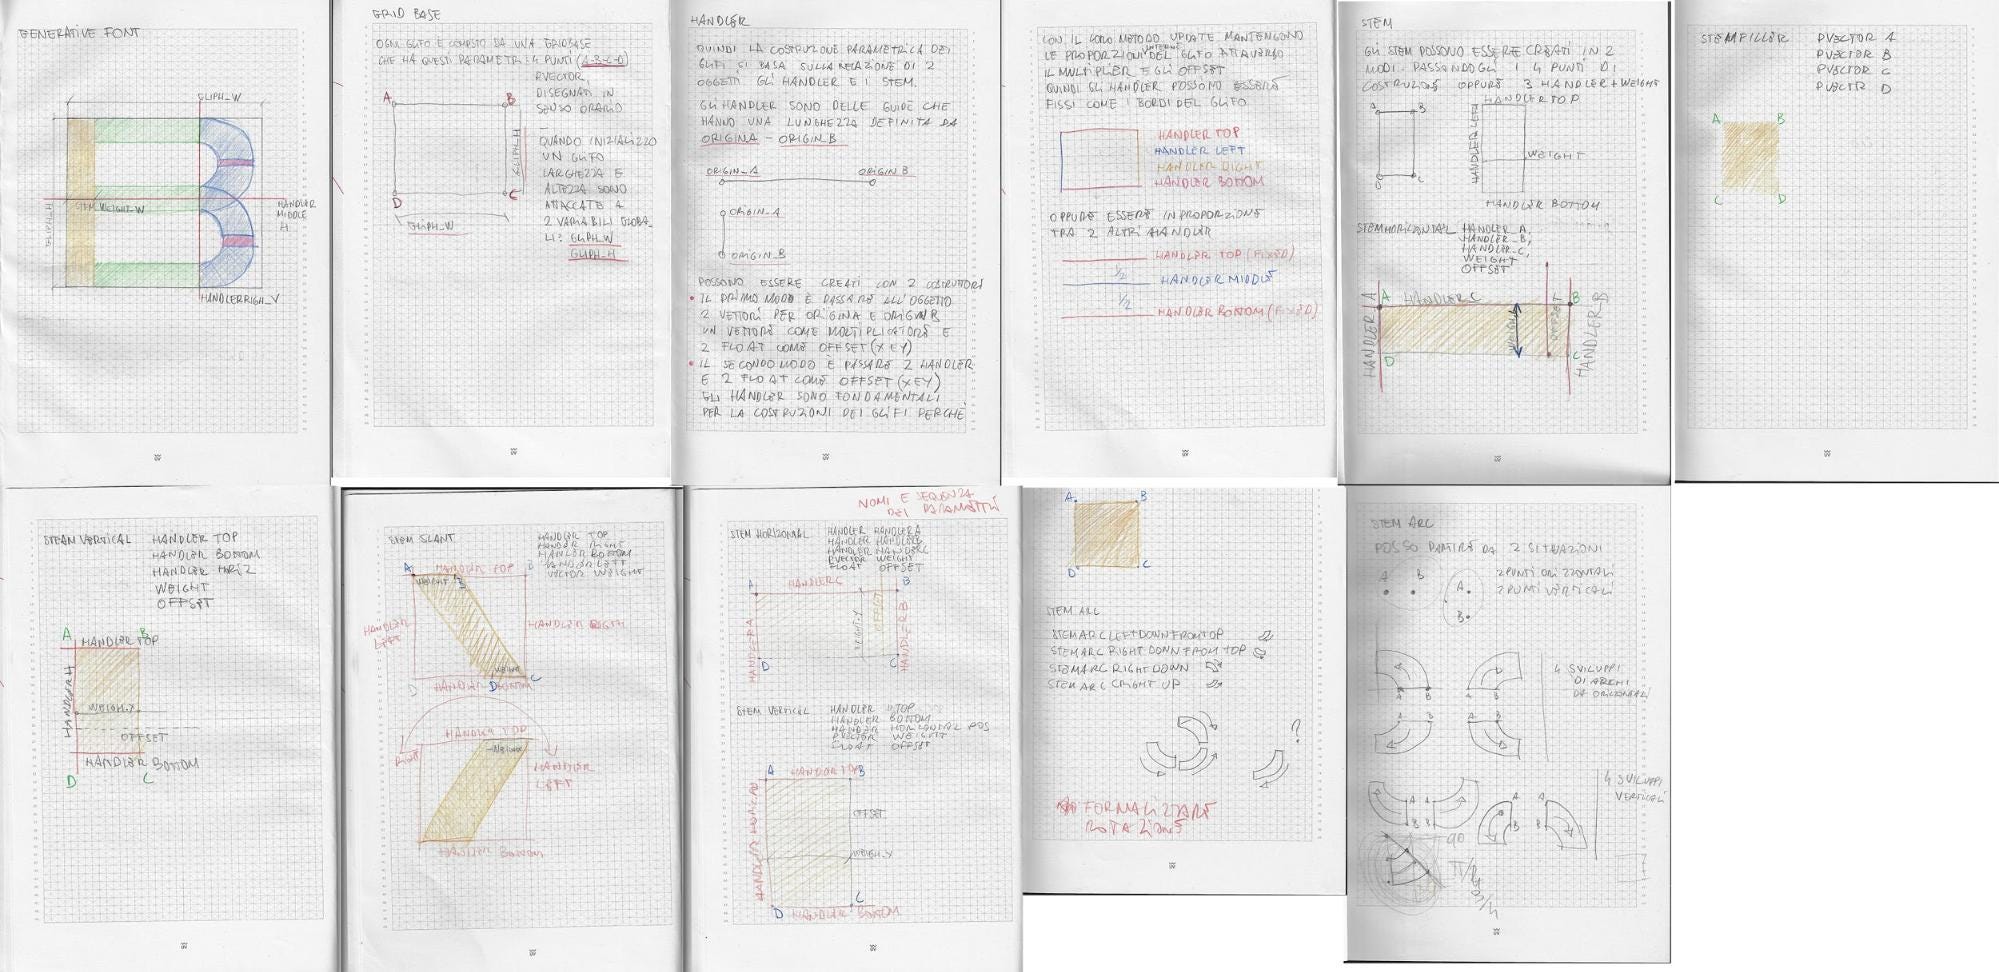 GENERATIVE FONT
GLIPH_W
GLIPH_H
STEM_WEIGHT_W
HANDLER
MIDDLE
H
HANDLERRIGH_V
GRID BASE
OGNI GLIFO È COMPOSTO DA UNA GRIDBASE
CHE HA QUESTI PARAMETRI: 4 PUNTI (A-B-C-D)
PVECTOR,
DISEGNATI IN
SENSO ORARIO
A
B
GLIPH_H
C
D
GLIPH_W
QUANDO INIZIALIZZO
UN GLIFO
LARGHEZZA E
ALTEZZA SONO
ATTACCATE A
2 VARIABILI GLOBA-
LI: GLIPH_W
GLIPH_H
HANDLER
QUINDI LA COSTRUZIONE PARAMETRICA DEI
GLIFI SI BASA SULLA RELAZIONE DI 2
OGGETTI GLI HANDLER E I STEM.
GLI HANDLER SONO DELLE GUIDE CHE
HANNO UNA LUNGHEZZA DEFINITA DA
ORIGINA - ORIGIN_B
ORIGIN_A
ORIGIN_B
ORIGIN_A
ORIGIN_B
POSSONO ESSERE CREATI CON 2 COSTRUTTORI
• IL PRIMO MODO È PASSARE ALL'OGGETTO
2 VETTORI PER ORIGINA E ORIGINB
UN VETTORE COME MULTIPLICATORE E
2 FLOAT COME OFFSET (X E Y)
• IL SECONDO MODO È PASSARE 2 HANDLER
E 2 FLOAT COME OFFSET (X E Y)
GLI HANDLER SONO FONDAMENTALI
PER LA COSTRUZIONI DEI GLIFI PERCHÈ
CON IL LORO METODO UPDATE MANTENGONO
LE PROPORZIONI INTERNE DEL GLIFO ATTRAVERSO
IL MULTIPLIER E GLI OFFSET
QUINDI GLI HANDLER POSSONO ESSERE
FISSI COME I BORDI DEL GLIFO
HANDLER TOP
HANDLER LEFT
HANDLER RIGHT
HANDLER BOTTOM
OPPURE ESSERE IN PROPORZIONE
TRA 2 ALTRI HANDLER
HANDLER TOP (FIXED)
1/2
HANDLER MIDDLE
1/2
HANDLER BOTTOM (FIXED)
STEM
GLI STEM POSSONO ESSERE CREATI IN 2
MODI. PASSANDOGLI I 4 PUNTI DI
COSTRUZIONE OPPURE 3 HANDLER + WEIGHT
A
B
D
C
HANDLER TOP
HANDLER LEFT
WEIGHT
HANDLER BOTTOM
STEMHORIZONTAL HANDLER_A,
HANDLER_B,
HANDLER_C,
WEIGHT
OFFSET
HANDLER A
A
HANDLER C
WEIGHT
OFFSET
B
HANDLER B
D
C
STEMFILLER
PVECTOR A
PVECTOR B
PVECTOR C
PVECTR D
A
B
C
D
STEAM VERTICAL
HANDLER TOP
HANDLER BOTTOM
HANDLER HORIZ
WEIGHT
OFFSET
A
HANDLER TOP
B
HANDLER H
WEIGH.X
OFFSET
HANDLER BOTTOM
D
C
STEM SLANT
HANDLER TOP
HANDLER RIGHT
HANDLER BOTTOM
HANDLER LEFT
VECTOR WEIGHT
A
HANDLER TOP
WEIGHT
B
HANDLER
LEFT
HANDLER RIGTH
WEIGHT
D
HANDLER BOTTOM
D
C
HANDLER TOP
RIGHT
WEIGHT
HANDLER
LEFT
HANDLER BOTTOM
NOMI E SEQUENZA
DEI PARAMETRI
STEM HORIZONAL
HANDLER HANDLERA
HANDLER HANDLERB
HANDLER HANDLERC
PVECTOR WEIGHT
FLOAT OFFSET
A
HANDLERC
B
HANDLER A
WEIGHT.Y
OFFSET
HANDLER B
D
C
STEM VERTICAL
HANDLER TOP
HANDLER BOTTOM
HANDLER HORIZONTAL POS
PVECTOR WEIGHT
FLOAT OFFSET
A
HANDLER TOP
B
OFFSET
WEIGH.X
D
HANDLER BOTTOM
C
A
B
D
C
STEM ARC
STEMARC LEFT DOWN FROM TOP
STEMARC RIGHT DOWN FROM TOP
STEMARC RIGHT DOWN
STEM ARC RIGHT UP
?
FORMALIZZARE
ROTAZIONE
STEM ARC
POSSO PARTIRE DA 2 SITUAZIONI
A
B
A
B
2 PUNTI ORIZZONTALI
2 PUNTI VERTICALI
A
B
A
B
A
B
A
B
4 SVILUPPI
DI ARCHI
DA ORIZZONTALI
A
A
B
B
A
B
A
B
4 SVILUPPI
VERTICALI
90